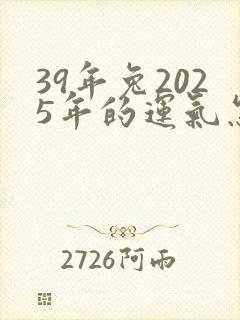 39年兔202
5年的運氣怎
2726阿雨